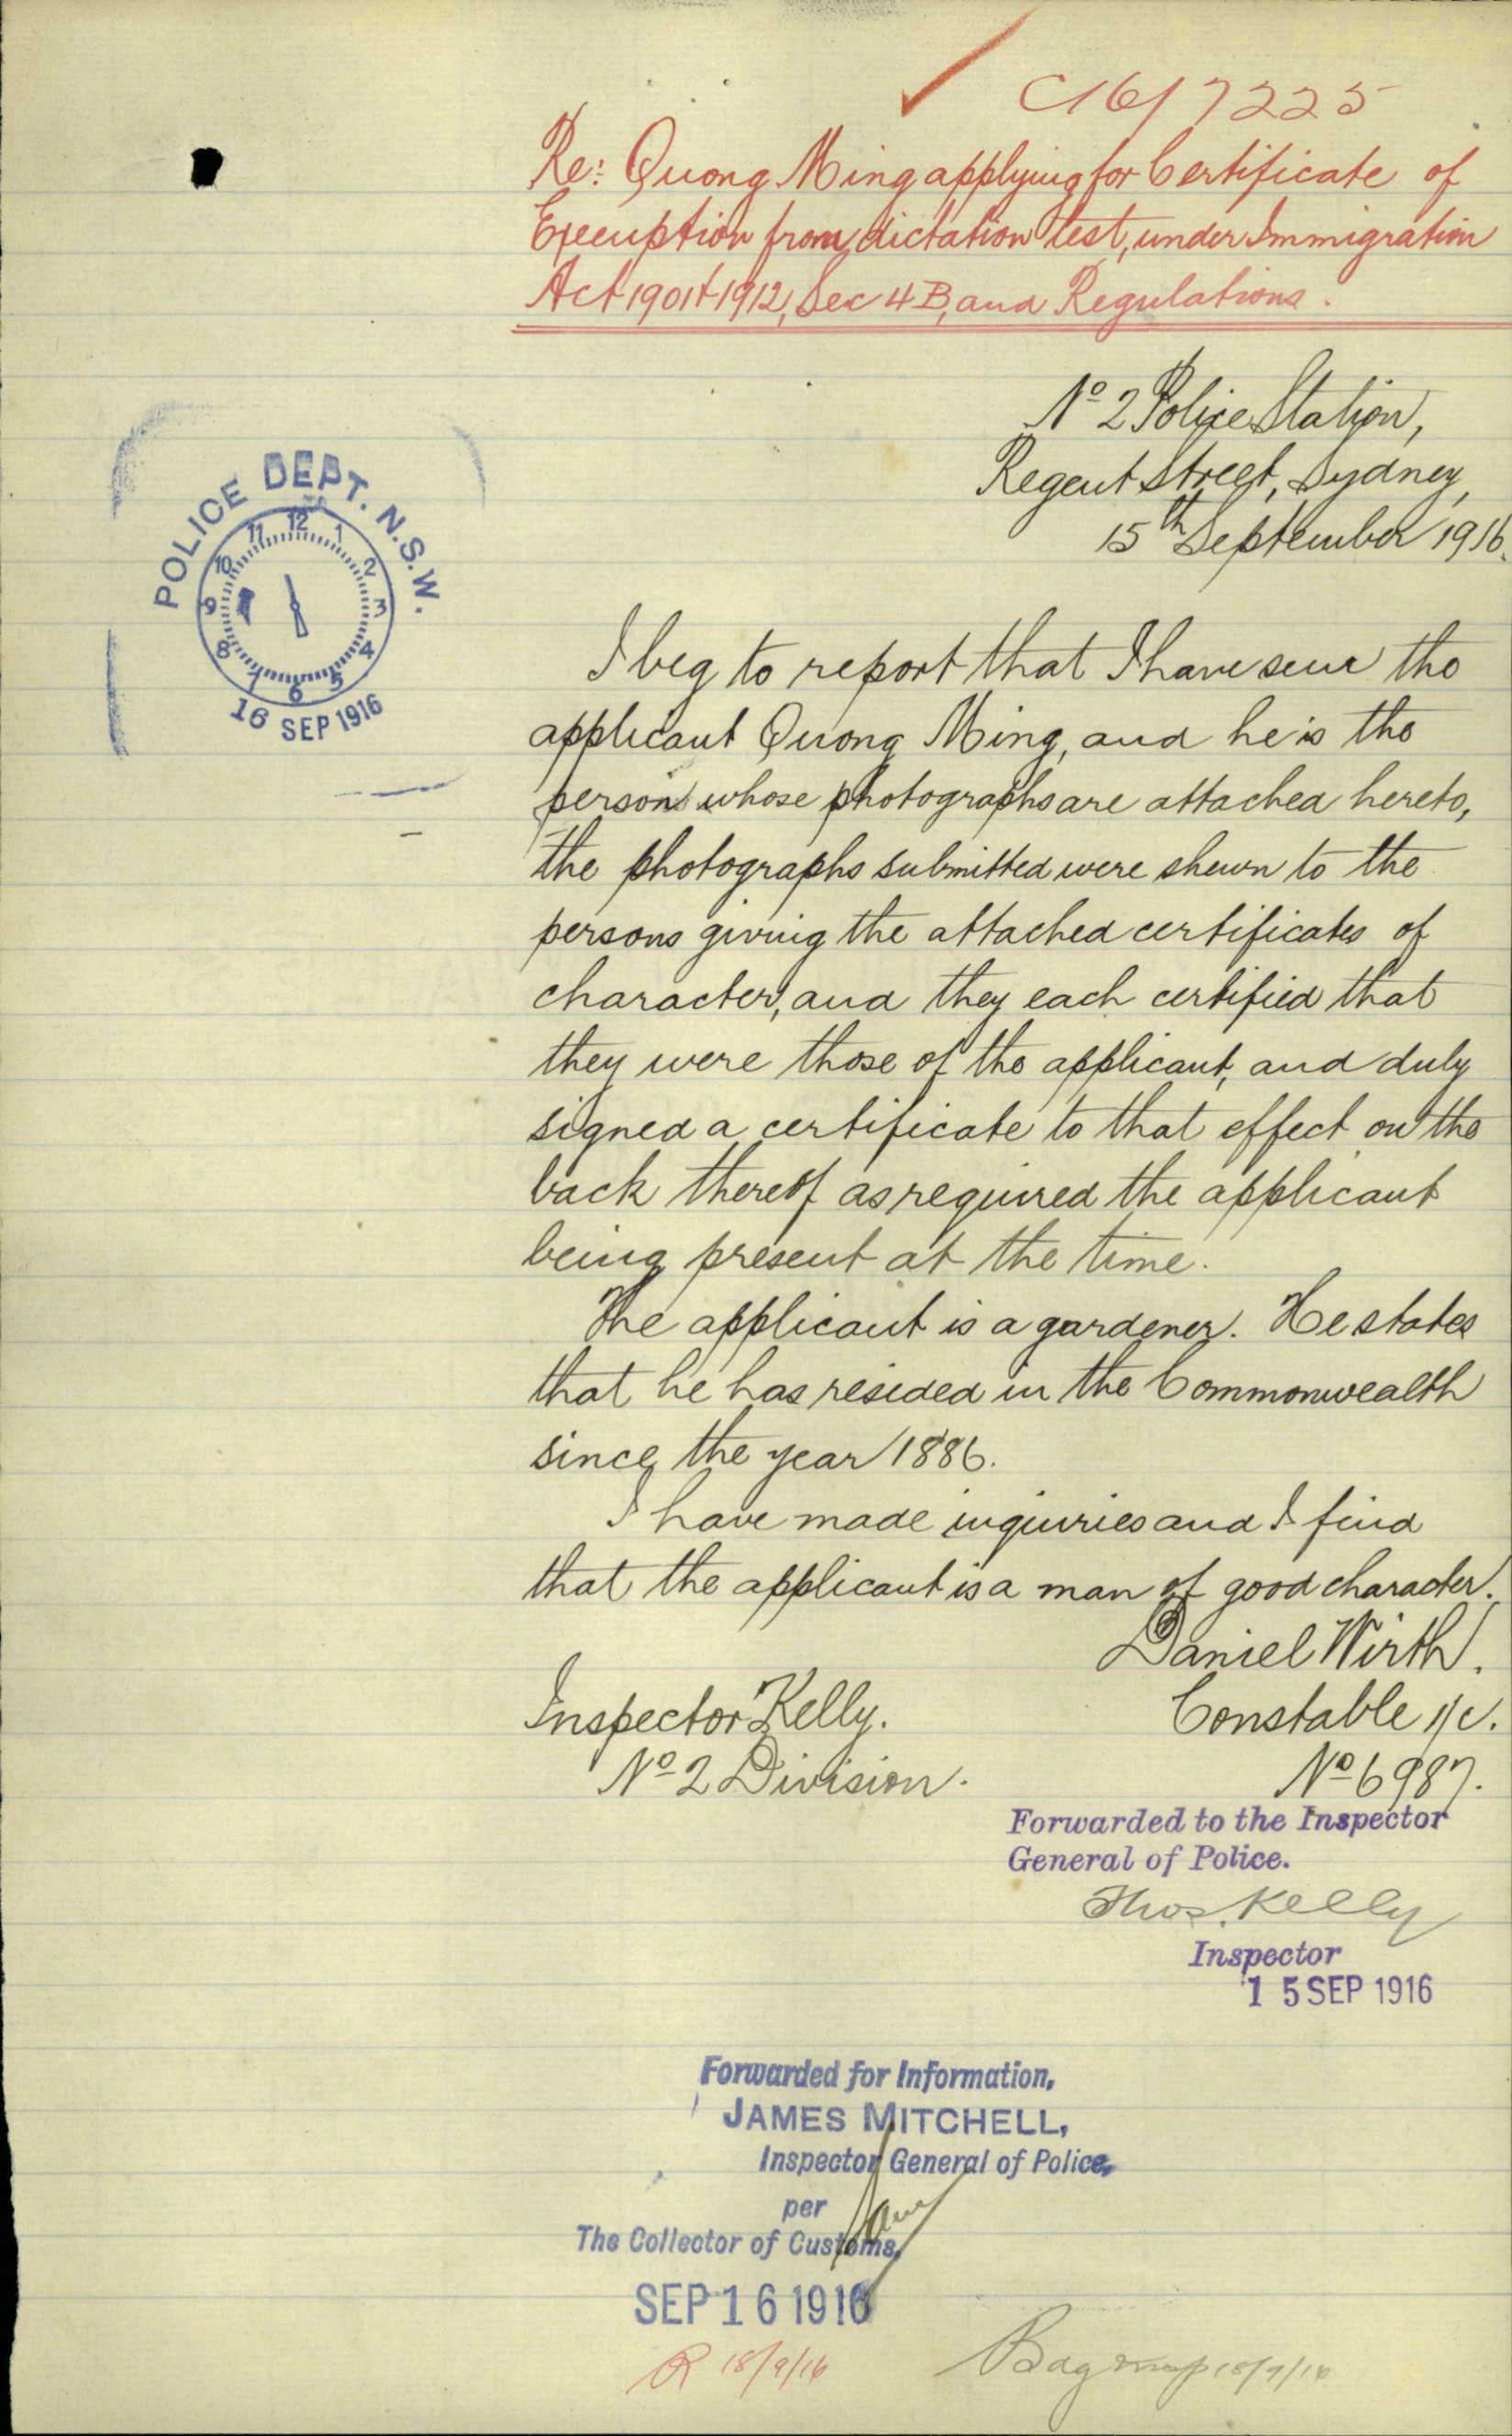 C16/7225
Re: Quong Ming applying for Certificate of
Exemption from dictation test, under Immigration
Act 1901+1912, Sec 4B, and Regulations.
No 2 Police Station,
Regent Street, Sydney,
15th September 1916.
POLICE DEPT. N.S.W.
12
1
2
3
4
5
6
7
8
9
10
11
16 SEP 1916
I beg to report that I have seen the
applicant Quong Ming, and he is the
person whose photographs are attached hereto,
the photographs submitted were shewn to the
persons giving the attached certificates of
character, and they each certified that
they were those of the applicant, and duly
signed a certificate to that effect on the
back thereof as required the applicant
being present at the time.
The applicant is a gardener. He states
that he has resided in the Commonwealth
since the year 1886.
I have made inquiries and I find
that the applicant is a man of good character.
Daniel Wirth.
Constable 1/c.
No 6987.
Inspector Kelly.
No 2 Division.
Forwarded to the Inspector
General of Police.
Thos. Kelly
Inspector
15 SEP 1916
Forwarded for Information,
JAMES MITCHELL,
Inspector General of Police,
per
The Collector of Customs,
SEP 16 1916
R 18/9/16
18/9/16